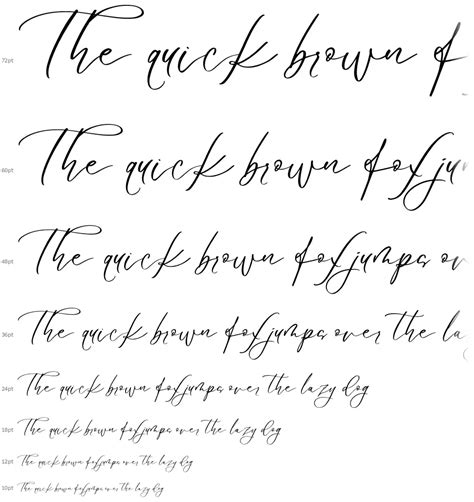 72pt The quick brown f
60pt The quick brown fox ju
48pt The quick brown fox jumps ov
36pt The quick brown fox jumps over the la
24pt The quick brown fox jumps over the lazy dog
18pt The quick brown fox jumps over the lazy dog
12pt The quick brown fox jumps over the lazy dog
10pt The quick brown fox jumps over the lazy dog